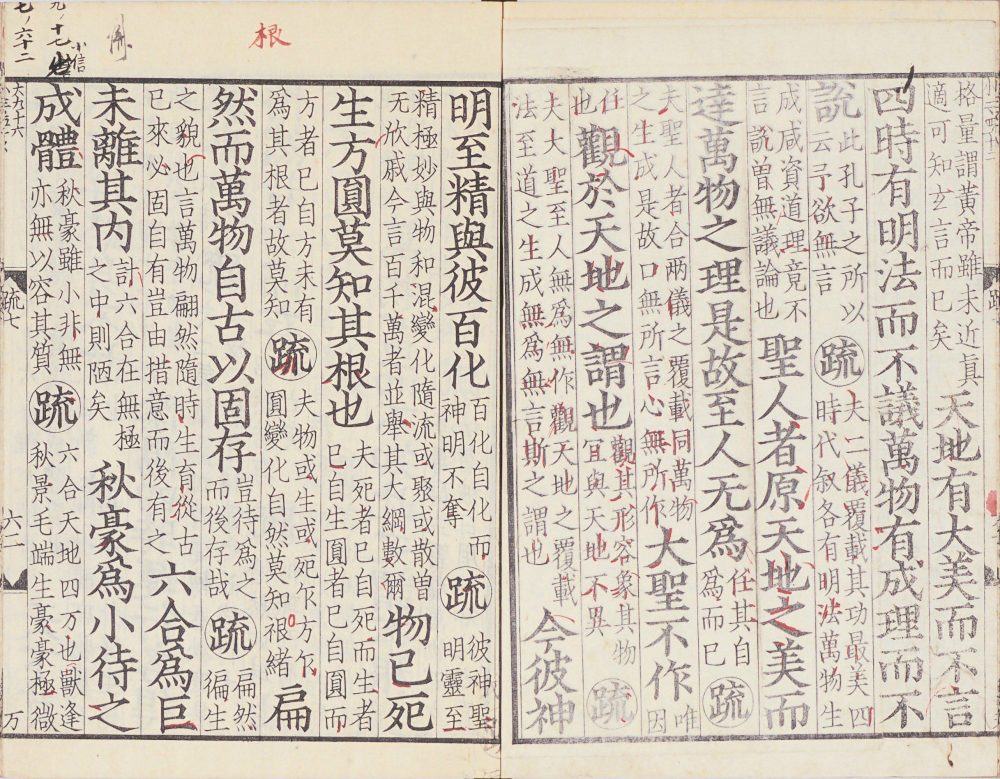 格量謂黃帝雖未近真
適可知玄言而已矣
天地有大美而不言
四時有明法而不議萬物有成理而不
說
此孔子之所以
云予欲無言
疏
夫二儀覆載其功最美四
時代叙各有明法萬物生
成咸資道理竟不
言說曽無議論也
聖人者原天地之美而
達萬物之理是故至人无爲
任其自
爲而已
疏
夫聖人者合兩儀之覆載同萬物
之生成是故口無所言心無所作
大聖不作
唯
因
任
也
觀於天地之謂也
觀其形容象其物
冝與天地不異
疏
夫大聖至人無爲無作觀天地之覆載
法至道之生成無爲無言斯之謂也
今彼神
根
明至精與彼百化
百化自化而
神明不奪
疏
彼神聖
明靈至
精極妙與物和混變化隨流或聚或散曽
无欣戚今言百千萬者並舉其大綱數爾
物已死
生方圓莫知其根也
夫死者已自死而生者
已自生圓者已自圓而
方者已自方未有
爲其根者故莫知
疏
夫物或生或死乍方乍
圓變化自然莫知根緒
扁
然而萬物自古以固存
豈待爲之
而後存哉
疏
扁然
徧生
之貌也言萬物翩然隨時生育從古
已來必固自有豈由措意而後有之
六合爲巨
未離其内
計六合在無極
之中則陋矣
秋豪爲小待之
成體
秋豪雖小非無
亦無以容其質
疏
六合天地四万也獸逢
秋景毛端生豪豪極微
小信
九ノ十七
七ノ六十二
疏七
六二
万